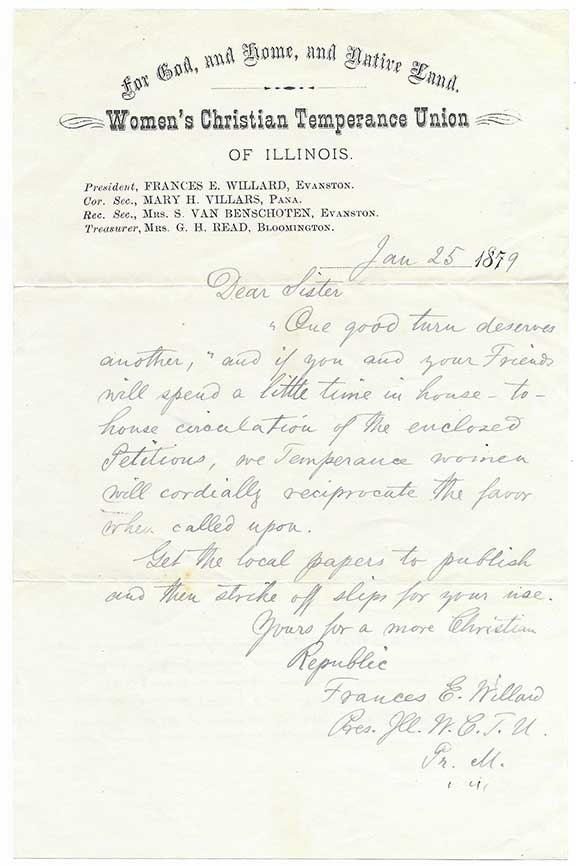 For God, and Home, and Native Land.
Women's Christian Temperance Union
OF ILLINOIS.
President, FRANCES E. WILLARD, EVANSTON.
Cor. Sec., MARY H. VILLARS, PANA.
Rec. Sec., MRS. S. VAN BENSCHOTEN, EVANSTON.
Treasurer, MRS. G. H. READ, BLOOMINGTON.
Jan 25 1879
Dear Sister
"One good turn deserves
another," and if you and your Friends
will spend a little time in house-to-
house circulation of the enclosed
Petitions, we Temperance women
will cordially reciprocate the favor
when called upon.
Get the local papers to publish
and then strike off slips for your use.
Yours for a more Christian
Republic
Frances E. Willard
Pres. Ill. W. C. T. U.
Pr. M.